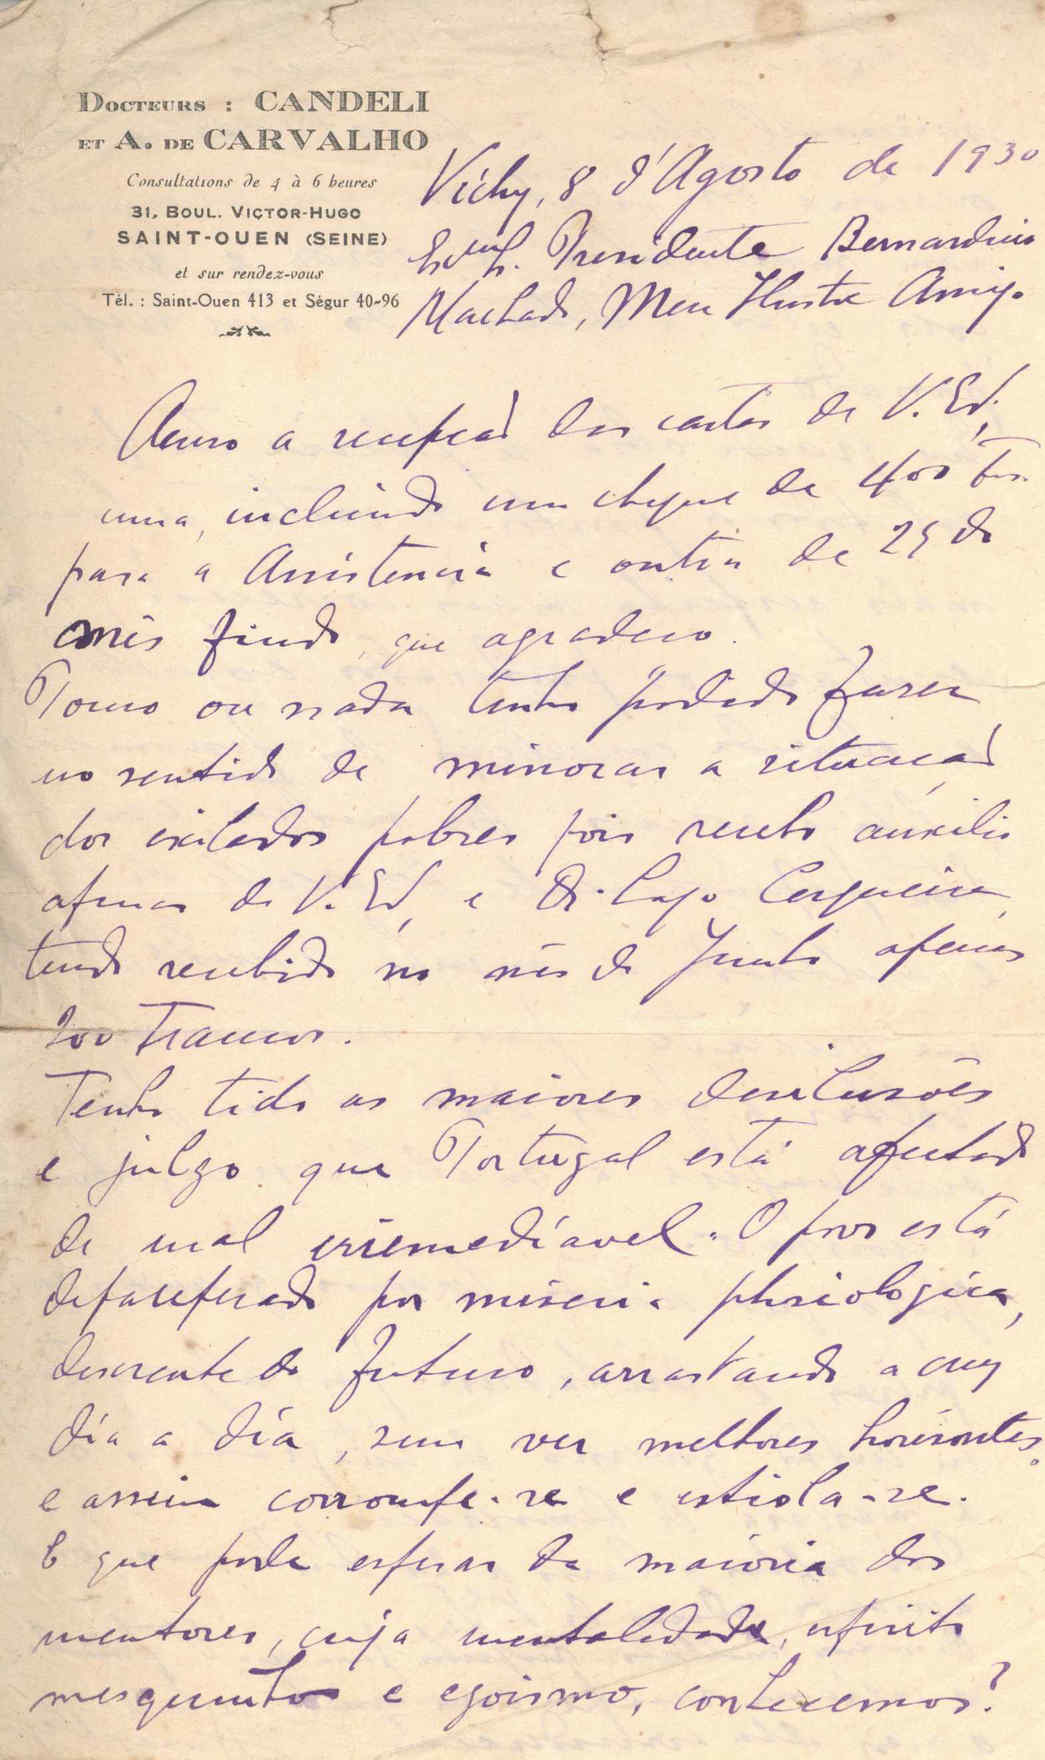 DOCTEURS : CANDELI
ET A. DE CARVALHO
Consultations de 4 à 6 heures
31, BOUL. VICTOR-HUGO
SAINT-OUEN (SEINE)
et sur rendez-vous
Tél. : Saint-Ouen 413 et Ségur 40-96
Vichy, 8 d'Agosto de 1930
Presidente Bernardino
Machado, Meu Ilustre Amigo
Acuso a recepção das cartas de V. Exª,
uma, incluindo um cheque de 400 frs.
para a Assistencia e outra de 25 do
mês findo, que agradeço.
Pouco ou nada tenho podido fazer
no sentido de minorar a situação
dos exilados pobres pois recebo auxilio
apenas de V. Exª e Dr. Cerqueira,
tendo recebido no mês de Junho apenas
200 Francos.
Tenho tido as maiores desilusões
e julgo que Portugal está afectado
de mal irremedíavel. O povo está
depauperado por miseria physiologica,
descrente do futuro, arrastando a cruz
día a día, sem ver melhores horisontes
e assim corrompe-se e estiola-se.
E que pode esperar da maioria dos
mentores, cuja mentalidade, espirito
mesquinho e egoismo, conhecemos?